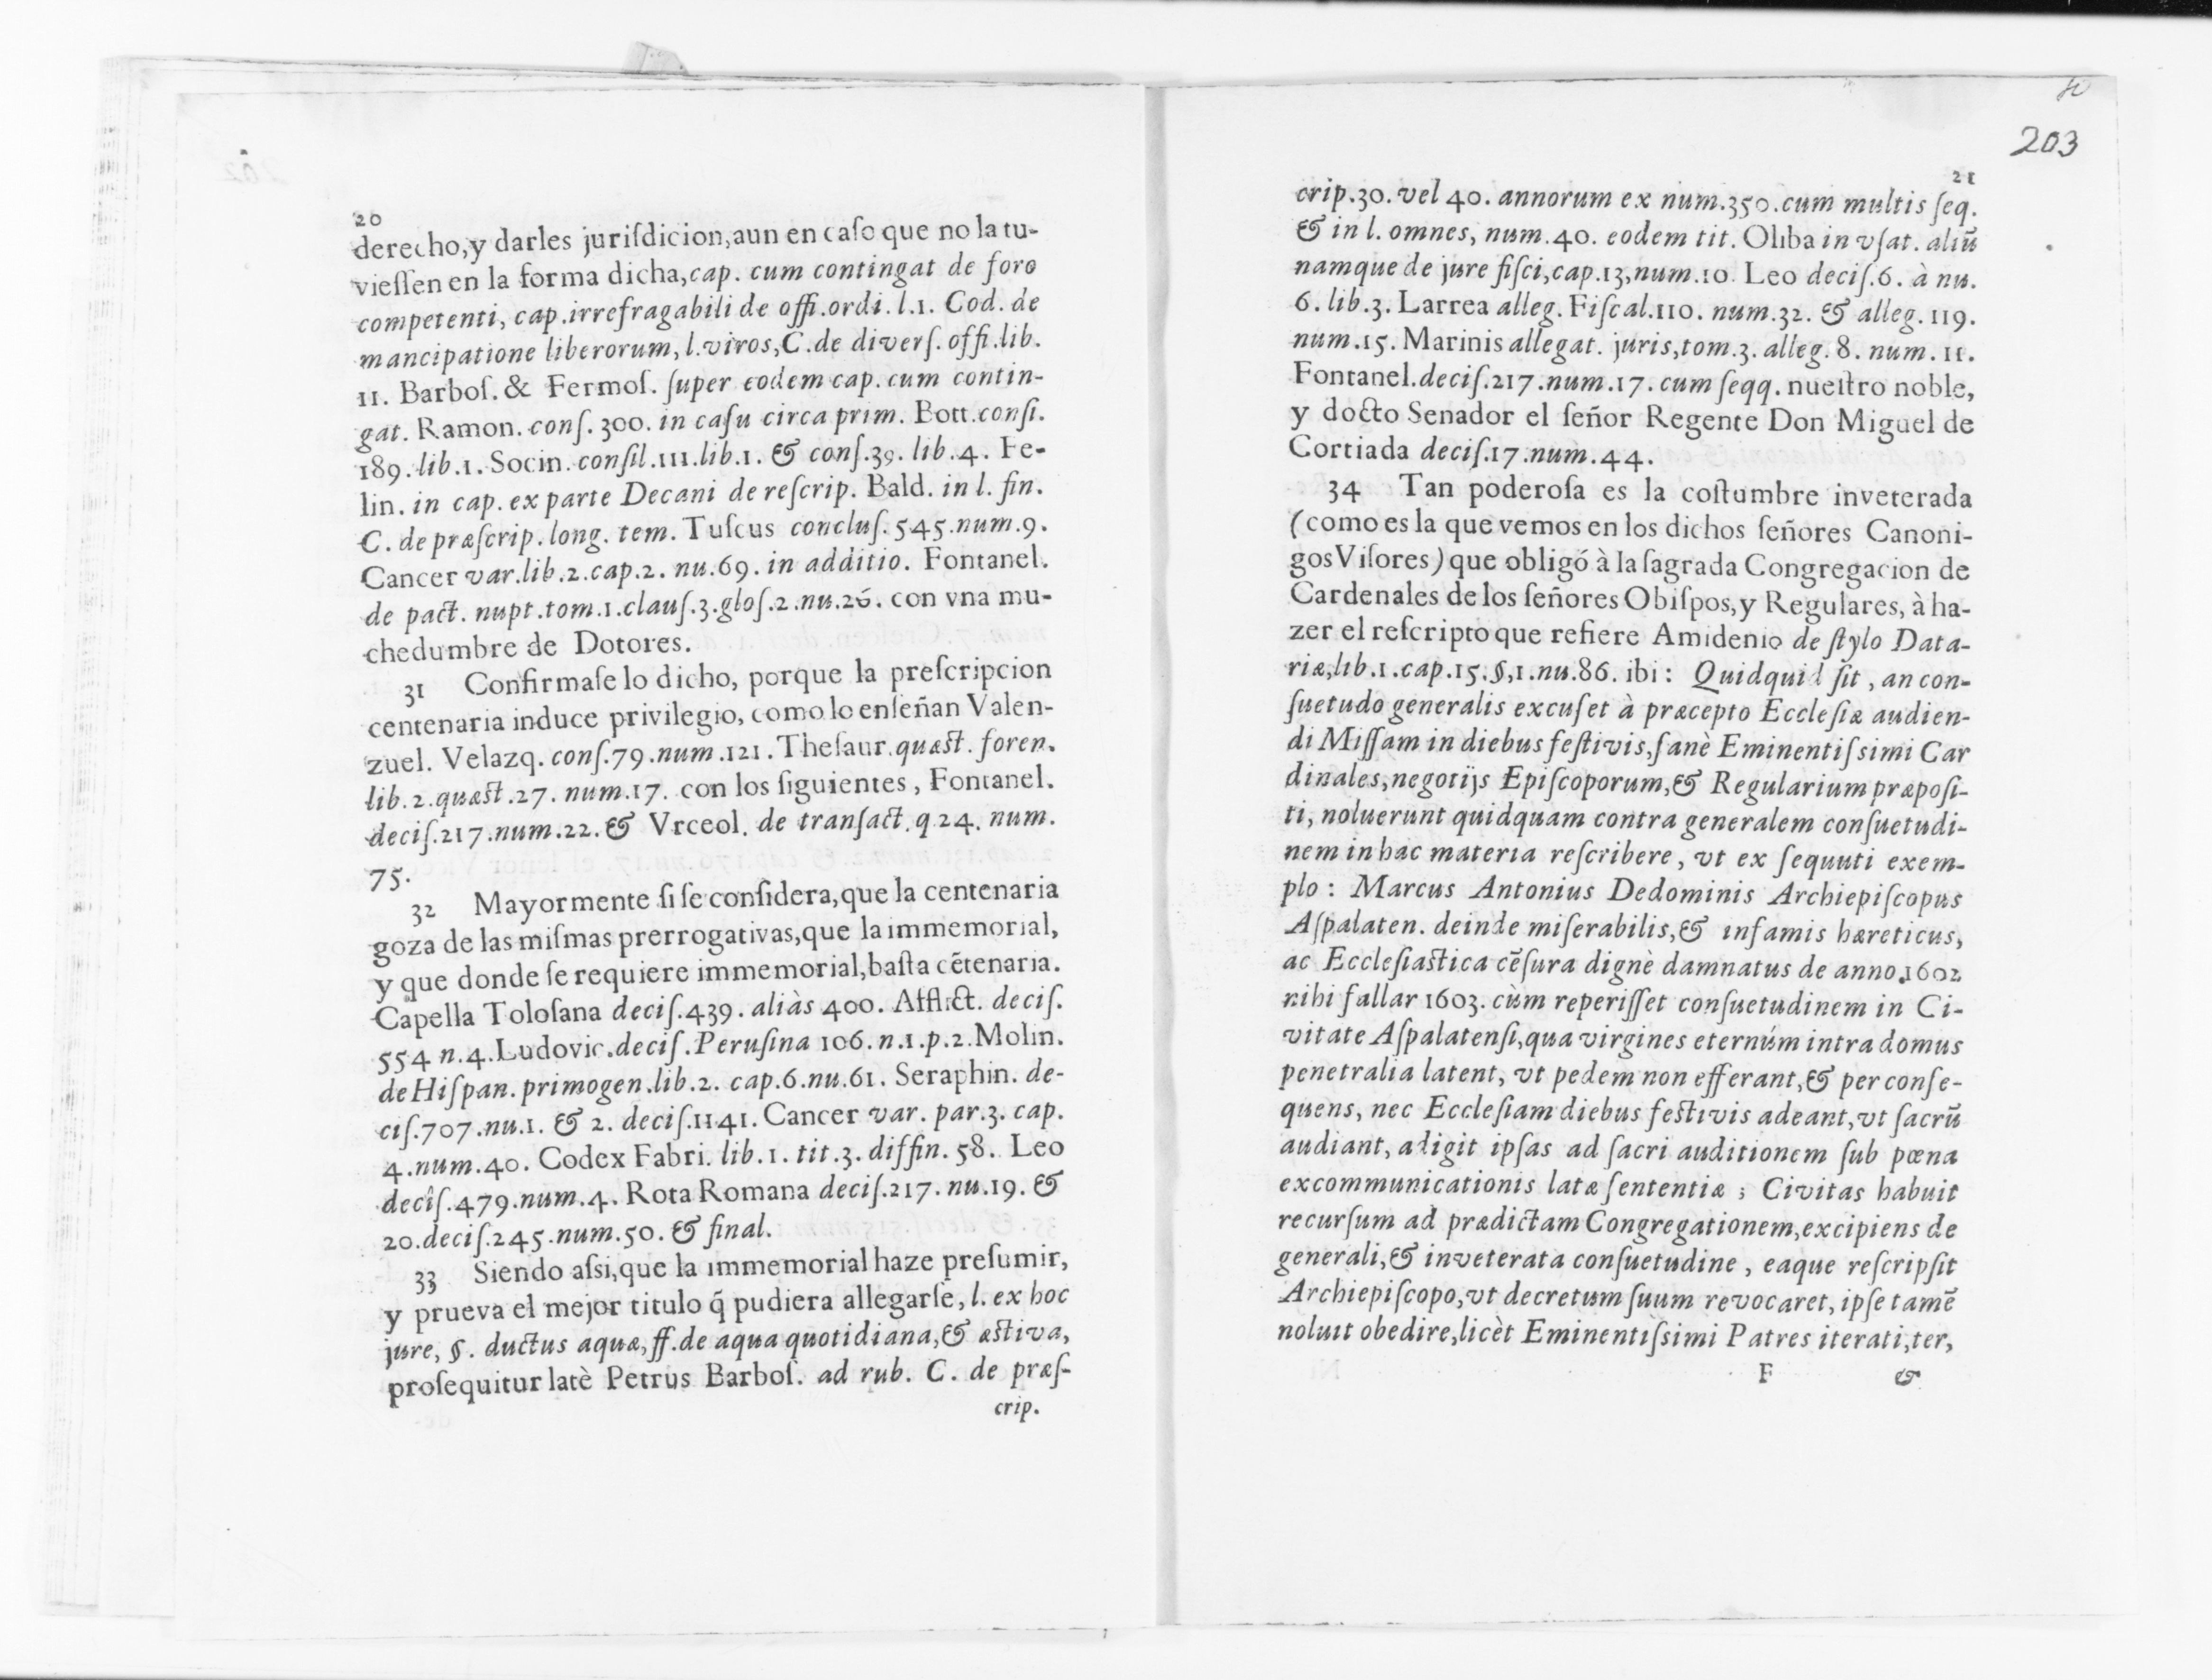 20
derecho,y darles juriſdicion,aun en caſo que no la tu-
vieſſen en la forma dicha,cap. cum contingat de foro
competenti, cap.irrefragabili de offi.ordi.l.1. Cod. de
mancipatione liberorum, l.viros,C.de diverſ.offi.lib.
11. Barboſ.& Fermoſ. ſuper eodem cap. cum contin-
gat. Ramon. conſ. 300. in caſu circa prim. Bott.conſi.
189.lib.1. Socin. conſil.111.lib.1. & conſ.39. lib.4. Fe-
lin. in cap. ex parte Decani de reſcrip. Bald. in l. fin.
C. de præſcrip. long. tem. Tuſcus concluſ. 545.num.9.
Cancer var.lib.2.cap.2. nu.69. in additio. Fontanel.
de pact. nupt.tom.1.clauſ.3.gloſ.2.nu.26. con vna mu-
chedumbre de Dotores.
31 Confirmaſe lo dicho, porque la preſcripcion
centenaria induce privilegio, como lo enſeñan Valen-
zuel. Velazq. conſ.79.num.121. Theſaur.quæst. foren.
lib.2.quæst.27. num.17. con los ſiguientes, Fontanel.
deciſ.217.num.22.& Vrceol. de tranſact. q.24. num.
75.
32 Mayormente ſi ſe conſidera,que la centenaria
goza de las miſmas prerrogativas,que la immemorial,
y que donde ſe requiere immemorial,baſta cẽtenaria.
Capella Toloſana deciſ.439. aliàs 400. Afflict. deciſ.
554 n.4.Ludovic.deciſ.Peruſina 106.n.1.p.2.Molin.
de Hiſpan. primogen.lib.2. cap.6.nu.61. Seraphin. de-
ciſ.707.nu.1. & 2. deciſ.1141. Cancer var. par.3. cap.
4.num.40. Codex Fabri. lib.1. tit.3. diffin. 58. Leo
deciſ.479.num.4. Rota Romana deciſ.217. nu.19. &
20.deciſ.245.num.50. & final.
33 Siendo aſsi,que la immemorial haze preſumir,
y prueva el mejor titulo q̃ pudiera allegarſe, l. ex hoc
jure, §. ductus aquæ,ff.de aqua quotidiana,& æstiva,
proſequitur latè Petrus Barboſ. ad rub. C. de præſ-
crip.
203
21
crip.30. vel 40. annorum ex num.350.cum multis ſeq.
& in l. omnes, num.40. eodem tit. Oliba in vſat. aliũ
namque de jure fiſci,cap.13,num.10. Leo deciſ.6. à nu.
6. lib.3. Larrea alleg. Fiſcal.110. num.32. & alleg. 119.
num.15. Marinis allegat. juris,tom.3. alleg. 8. num. 11.
Fontanel.deciſ.217.num.17. cum ſeqq. nueſtro noble,
y docto Senador el ſeñor Regente Don Miguel de
Cortiada deciſ.17.num.44.
34 Tan poderoſa es la coſtumbre inveterada
(como es la que vemos en los dichos ſeñores Canoni-
gos Viſores) que obligó à la ſagrada Congregacion de
Cardenales de los ſeñores Obiſpos,y Regulares, à ha-
zer el reſcripto que refiere Amidenio de ſtylo Data-
riæ,lib.1.cap.15.§,1.nu.86. ibi: Quidquid ſit, an con-
ſuetudo generalis excuſet à præcepto Eccleſiæ audien-
di Miſſam in diebus feſtivis,ſanè Eminentiſsimi Car
dinales,negotijs Epiſcoporum,& Regularium præpoſi-
ti, noluerunt quidquam contra generalem conſuetudi-
nem in hac materia reſcribere, vt ex ſequuti exem-
plo: Marcus Antonius Dedominis Archiepiſcopus
Aſpalaten. deinde miſerabilis,& infamis hæreticus,
ac Eccleſiastica cẽſura dignè damnatus de anno.1602
nihi fallar 1603. cùm reperiſſet conſuetudinem in Ci-
vitate Aſpalatenſi,qua virgines eternúm intra domus
penetralia latent, vt pedem non efferant,& per conſe-
quens, nec Eccleſiam diebus feſtivis adeant,vt ſacrũ
audiant, adigit ipſas ad ſacri auditionem ſub pœna
excommunicationis latæ ſententiæ; Civitas habuit
recurſum ad prædictam Congregationem,excipiens de
generali,& inveterata conſuetudine, eaque reſcripſit
Archiepiſcopo,vt decretum ſuum revocaret, ipſe tamẽ
noluit obedire,licèt Eminentiſsimi Patres iterati,ter,
F &